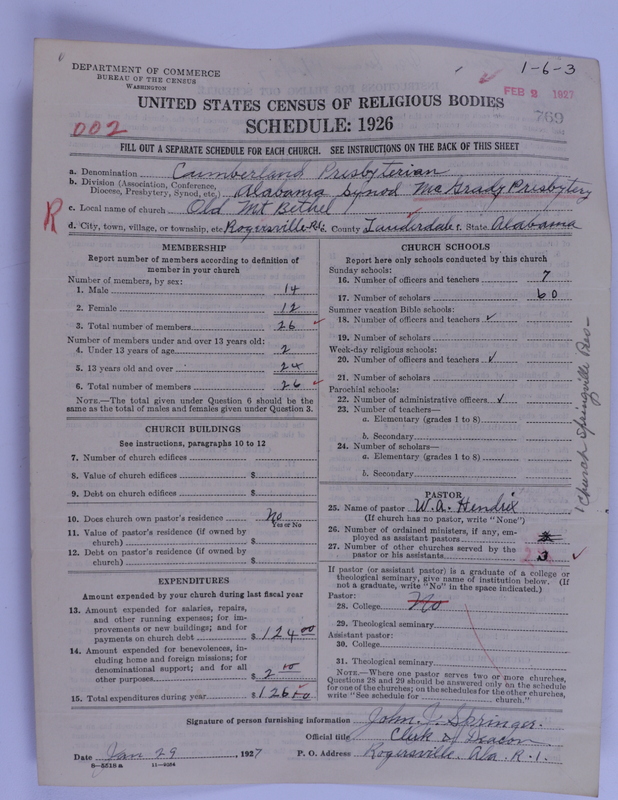 DEPARTMENT OF COMMERCE
BUREAU OF THE CENSUS
WASHINGTON
1-6-3
FEB 2 1927
769
UNITED STATES CENSUS OF RELIGIOUS BODIES
SCHEDULE: 1926
002
FILL OUT A SEPARATE SCHEDULE FOR EACH CHURCH. SEE INSTRUCTIONS ON THE BACK OF THIS SHEET
a. Denomination Cumberland Presbyterian
b. Division (Association, Conference, Diocese, Presbytery, Synod, etc.) Alabama Synod McGrady Presbytery
R
c. Local name of church Old Mt Bethel
d. City, town, village, or township, etc. Rogersville-R1 e. County Lauderdale f. State Alabama
MEMBERSHIP
Report number of members according to definition of
member in your church
Number of members, by sex:
1. Male 14
2. Female 12
3. Total number of members 26
Number of members under and over 13 years old:
4. Under 13 years of age 2
5. 13 years old and over 24
6. Total number of members 26
NOTE.—The total given under Question 6 should be
same as the total of males and females given under Question 3.
CHURCH BUILDINGS
See instructions, paragraphs 10 to 12
7. Number of church edifices
8. Value of church edifices $
9. Debt on church edifices $
10. Does church own pastor's residence No
Yes or No
11. Value of pastor's residence (if owned by
church) $
12. Debt on pastor's residence (if owned by
church) $
EXPENDITURES
Amount expended by your church during last fiscal year
13. Amount expended for salaries, repairs,
and other running expenses; for im-
provements or new buildings; and for
payments on church debt $ 124 00
14. Amount expended for benevolences, in-
cluding home and foreign missions; for
denominational support; and for all
other purposes $ 2 10
15. Total expenditures during year $ 126 10
CHURCH SCHOOLS
Report here only schools conducted by this church
Sunday schools:
16. Number of officers and teachers 7
17. Number of scholars 60
Summer vacation Bible schools:
18. Number of officers and teachers ✓
19. Number of scholars
Week-day religious schools:
20. Number of officers and teachers ✓
21. Number of scholars
Parochial schools:
22. Number of administrative officers ✓
23. Number of teachers—
a. Elementary (grades 1 to 8)
b. Secondary
24. Number of scholars—
a. Elementary (grades 1 to 8)
b. Secondary
PASTOR
25. Name of pastor W. A. Hendrix
(If church has no pastor, write "None")
26. Number of ordained ministers, if any, em-
ployed as assistant pastors
27. Number of other churches served by the
pastor or his assistants 3
If pastor (or assistant pastor) is a graduate of a college or
theological seminary, give name of institution below. (If
not a graduate, write "No" in the space indicated.)
Pastor:
28. College No
29. Theological seminary
Assistant pastor:
30. College
31. Theological seminary
NOTE.—Where one pastor serves two or more churches,
Questions 28 and 29 should be answered only on the schedule
for one of the churches; on the schedules for the other churches,
write "See schedule for church."
1 Church Springville Pres-
Signature of person furnishing information John I. Springer.
Official title Clerk & Deacon
Date Jan 29, 1927
P. O. Address Rogersville, Ala. R. 1.
8-5518 a 11-9324